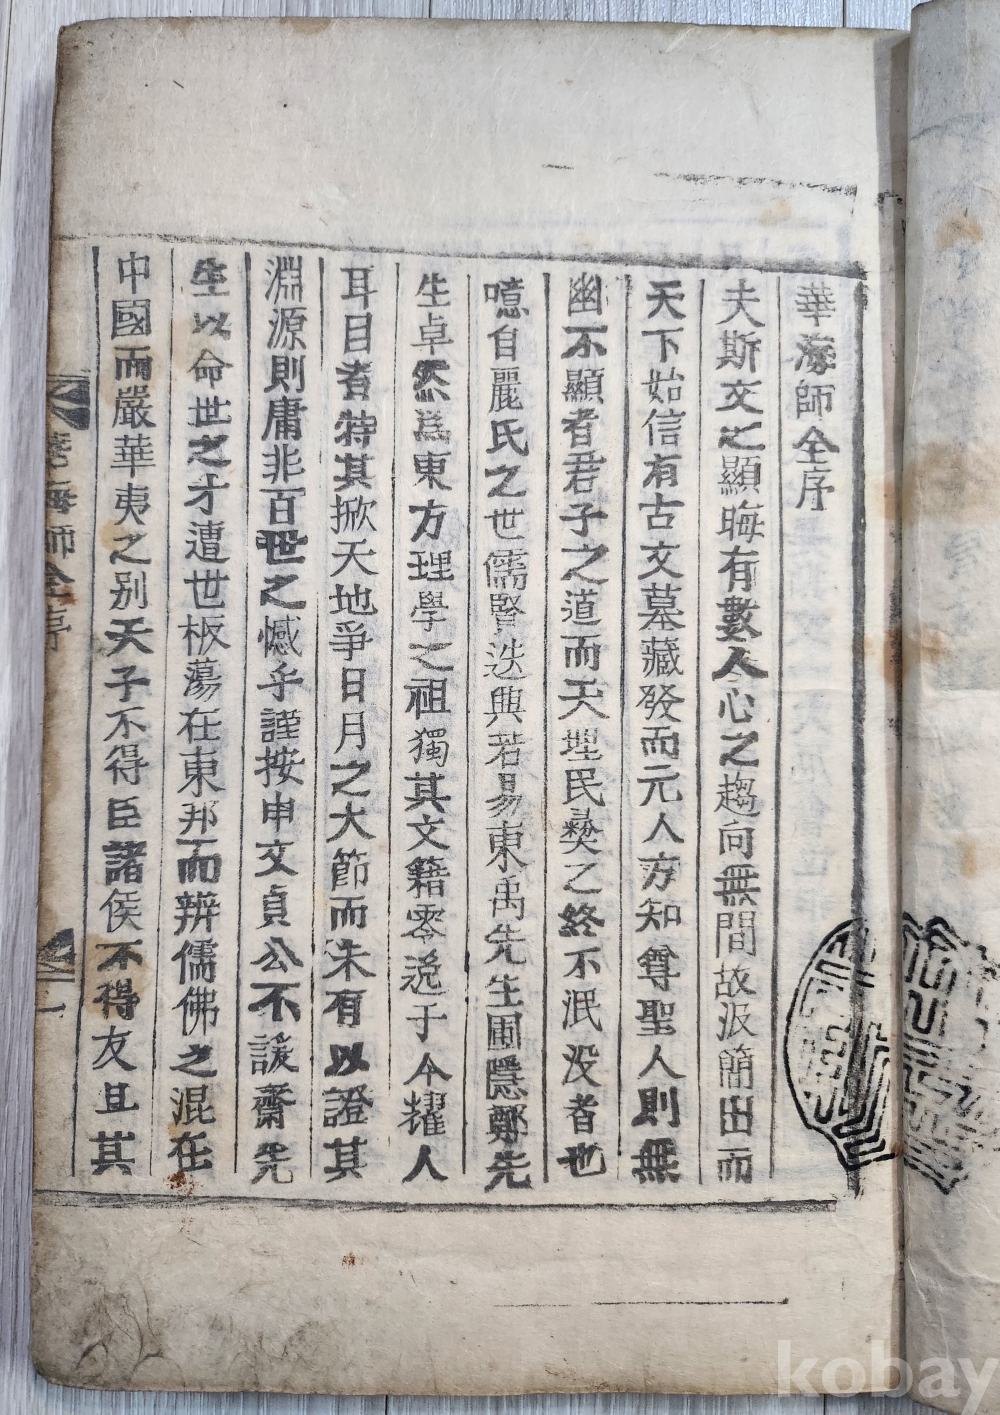 華海師全序
夫斯文之顯晦有數人心之趨向無間故汲簡出而
天下始信有古文墓藏發而元人方知尊聖人則無
幽不顯者君子之道而天理民彝之終不泯没者也
噫自麗氏之世儒賢迭興若易東禹先生圃隱鄭先
生卓然爲東方理學之祖獨其文籍零逸于今擢人
耳目者特其掀天地爭日月之大節而未有以證其
淵源則庸非百世之憾乎謹按申文貞公不諼齋先
生以命世之才遭世板蕩在東邦而辨儒佛之混在
中國而嚴華夷之別天子不得臣諸侯不得友且其
華海師全序
一
kobay